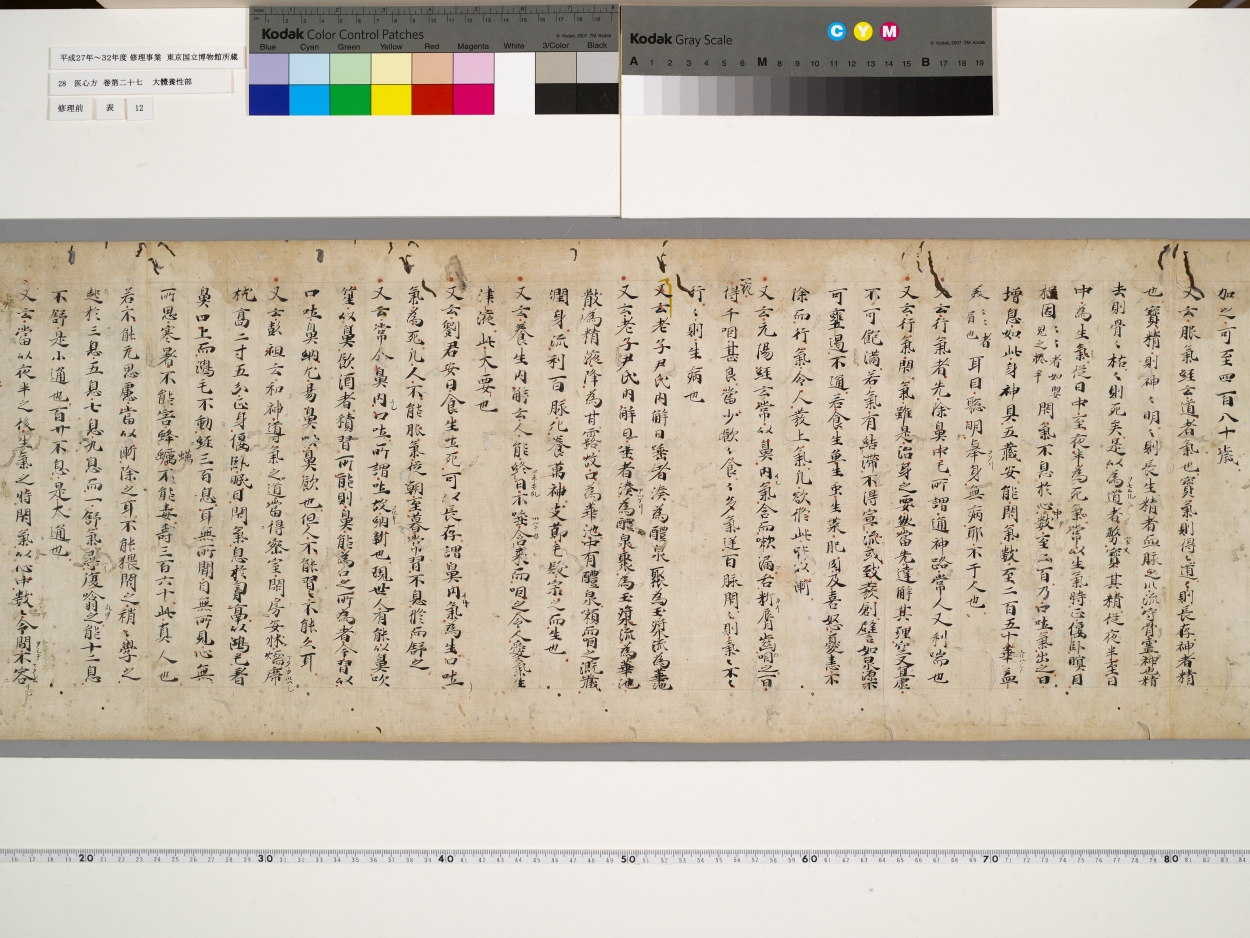 平成27年～32年度 修理事業 東京国立博物館所蔵
28 医心方 巻第二十七 大體養性部
修理前 表 12
Kodak Color Control Patches
Blue Cyan Green Yellow Red Magenta White 3/Color Black
Kodak Gray Scale
C Y M
A 1 2 3 4 5 6 M 8 9 10 11 12 13 14 15 B 17 18 19
加之可至四百八十歳
又云服氣經云道者氣也寶氣則得〻道〻則長存神者精
也寶精則神〻明〻則長生精者血脉之川流守骨靈神也精
去則骨〻枯〻則死矣是以為道者務寶其精從夜半至日
中為生氣從日中至夜半為死氣常以生氣時正偃卧瞑目
握固〻〻者如嬰兒之捲手閇氣不息於心數至二百乃口吐氣出之日
增息如此身神具五藏安能閇氣數至二百五十華盖
〻〻者眉也耳目聡明舉身無病耶不干人也
又云行氣者先除鼻中毛所謂通神路常人又利喘也
又云行氣閇氣雖是治身之要然當先達解其理空又宜虚
不可飽滿若氣有結滯不得宣流或致發創譬如泉源不
可壅遏不通若食生魚生虫生菜肥肉及喜怒憂恚不
除而行氣令人發上氣凡欲作此皆以漸
又云元陽經云常以鼻内氣含而嗽滿舌析脣齒咽之一日一夜
得千咽甚良當少飲〻食〻多氣逆百脉閇〻則氣〻不〻
行〻則生病也
又云老子尹氏内解曰唾者湊為醴泉聚為玉漿流為華池
散為精液降為甘露故口為華池中有醴泉漱而咽之溉藏
潤身流利百脉化養萬神支節毛髮宗之而生也
又云養生内解云人能終日不唾含棗而咽之令人愛氣生
津液此大要也
又云劉君安曰食生吐死可以長存謂鼻内氣為生口吐
氣為死凡人不能服氣從朝至暮常習不息徐而舒之
又云常令鼻内口吐所謂吐故納新也現世人有能以鼻吹
笙以鼻飲酒者積習所能則鼻能為口之所為者今習以
口吐鼻納尤易鼻吹鼻飲也但人不能習〻不能久耳
又云彭祖云和神導氣之道當得密室閇房安牀煖席
枕高二寸五分正身偃卧瞑目閇氣息於胷膈以鴻毛著
鼻口上而鴻毛不動經三百息耳無所聞目無所見心無
所思寒暑不能害蜂蠆不能毒壽三百六十此真人也
若不能元思慮當以漸除之耳不能猥閇之稍〻學之
起於三息五息七息九息而一舒氣尋復噏之能十二息
不舒是小通也百廿不息是大通也
又云當以夜半之後生氣之時閇氣以心中數〻令間不容